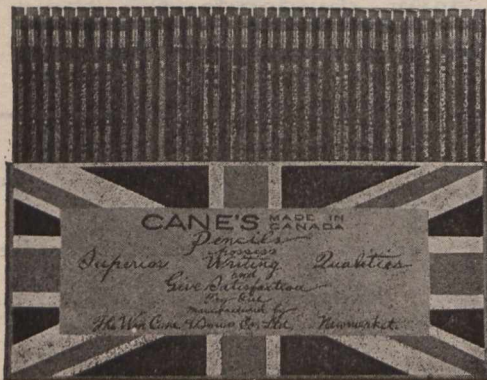 CANE'S MADE IN CANADA
Pencils
Possess
Superior Writing Qualities
and
Give Satisfaction
Manufactured by
The Wm Cane & Sons Co. Ltd. Newmarket.